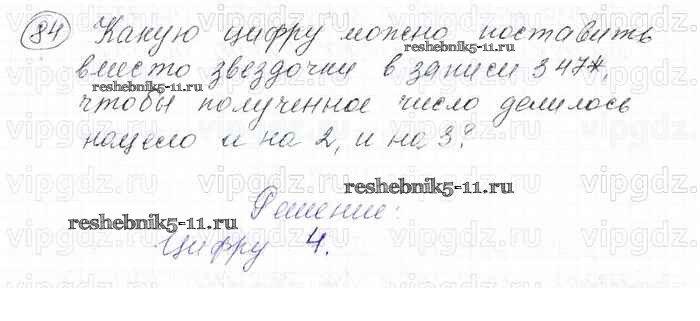 84 Какую цифру можно поставить
вместо звездочки в записи 347*,
чтобы полученное число делилось
нацело и на 2, и на 3?
Решение:
Цифру 4.
reshebnik5-11.ru
reshebnik5-11.ru
reshebnik5-11.ru
vipgdz.ru vipgdz.ru vipgdz.ru vipgdz.ru